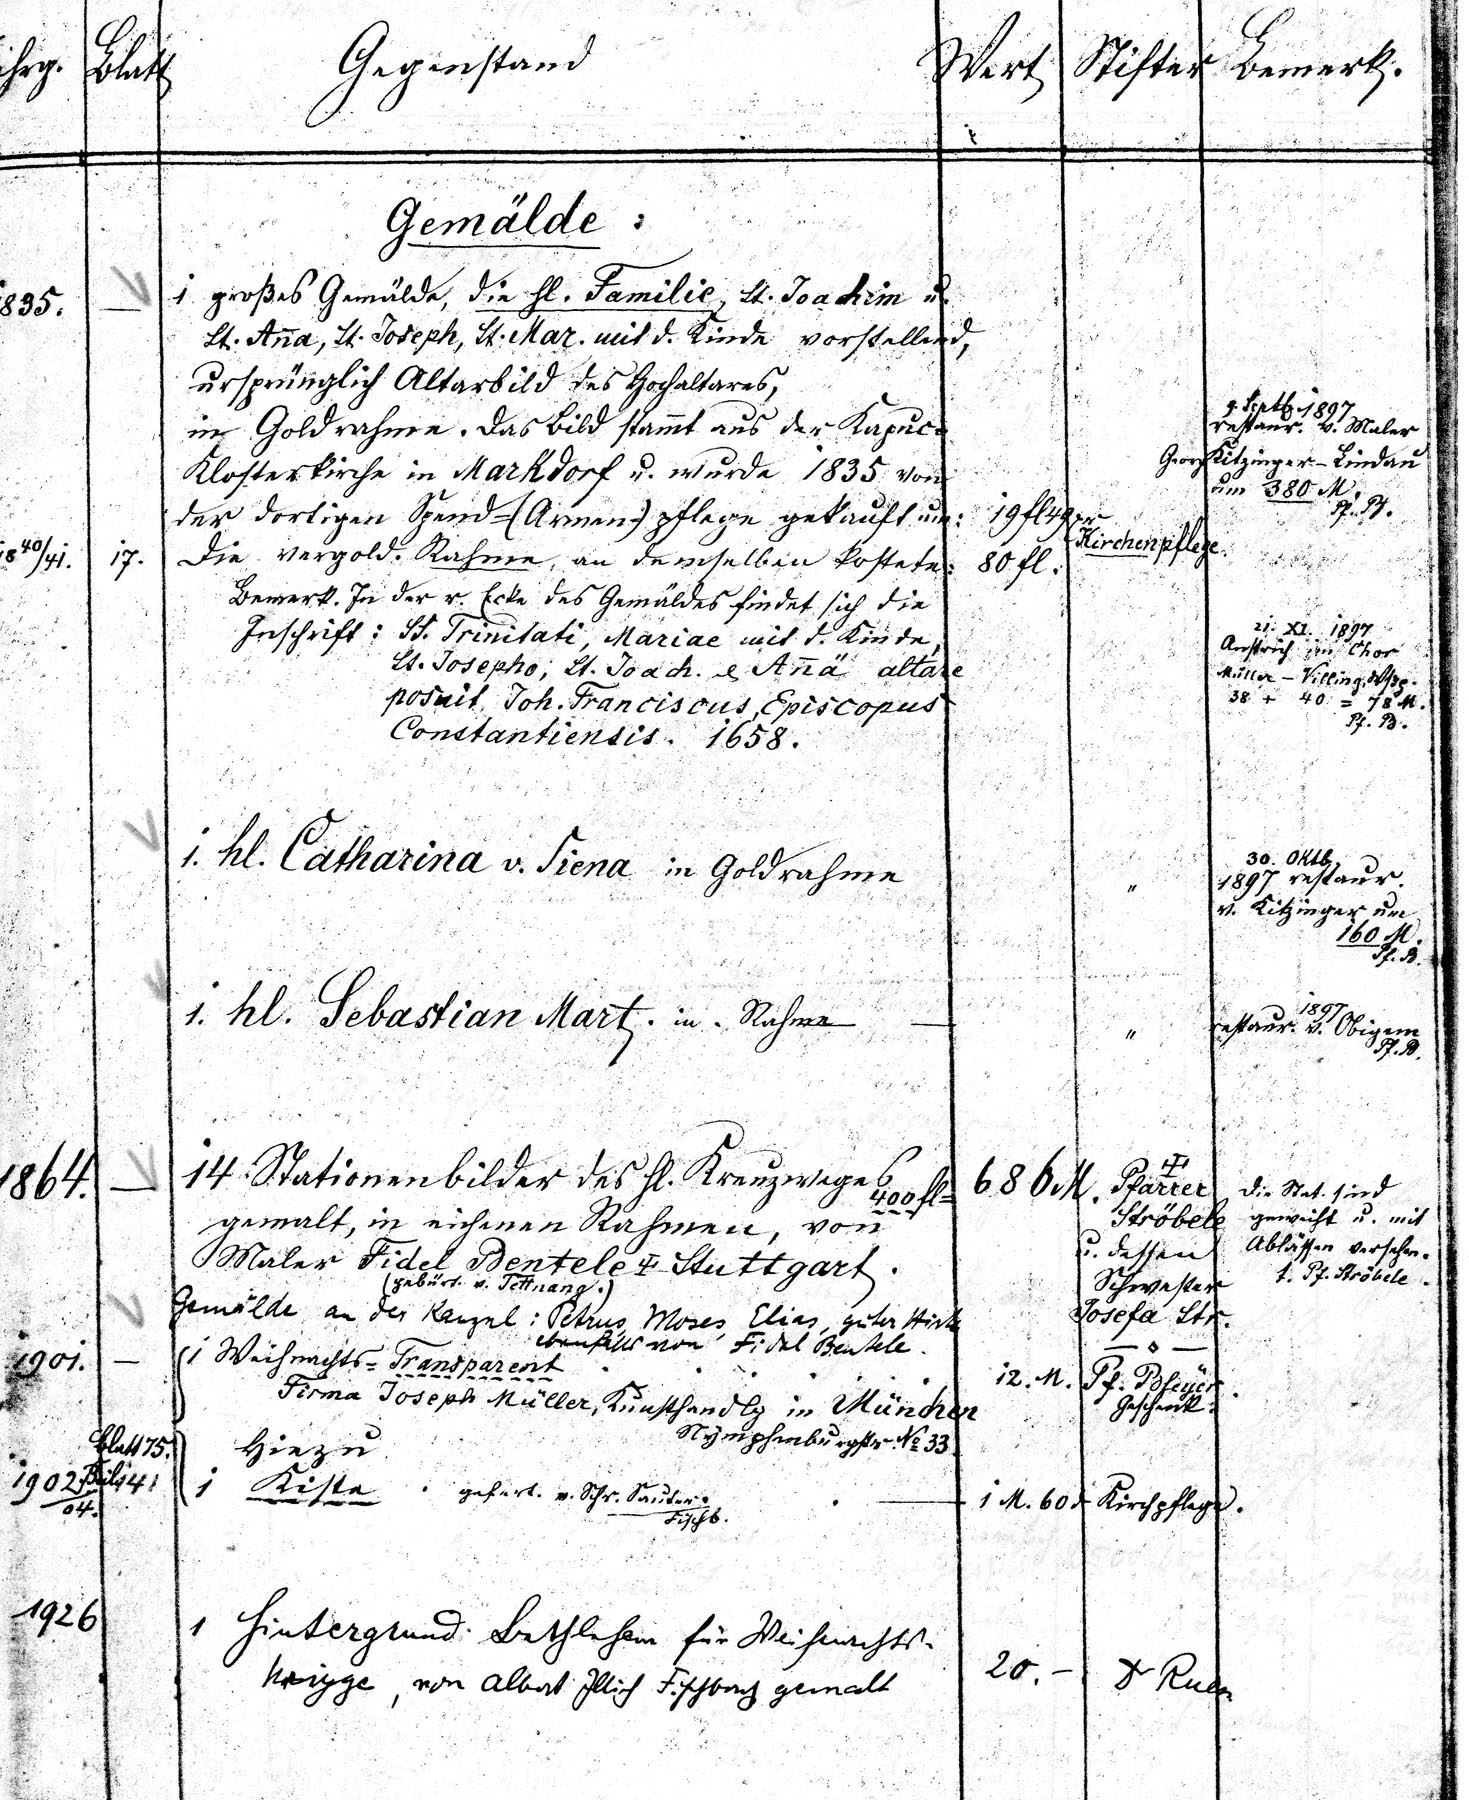 ihrg. Blatt Gegenstand Wert Stifter Bemerk.
Gemälde :
1835. — 1 großes Gemälde, die hl. Familie, St. Joachim u.
St. Aña, St. Joseph, St. Mar. mit d. Kinde vorstellend,
ursprünglich Altarbild des Hochaltares,
in Goldrahme. Das Bild stam̄t aus der Kapuc=
Klosterkirche in Markdorf u. wurde 1835 von
der dortigen Spend=(Armen=) pflege gekauft um: 19 fl 49 xr
Kirchenpflege.
9 Septb. 1897
restaur. v. Maler
Georg Kitzinger – Lindau
um 380 M.
Pf. B.
18 40/41. 17. Die vergold. Rahme an demselben kostete: 80 fl.
Bemerk. In der r. Ecke des Gemäldes findet sich die
Inschrift : SS. Trinitati, Mariae mit d. Kinde,
St. Josepho, St. Joach. & Añä altare
posuit Joh. Franciscus, Episcopus
Constantiensis. 1658.
21. XI. 1897
Anstrich im Chor
Müller – Villing
38 + 40 = 78 M.
Pf. B.
1. hl. Catharina v. Siena in Goldrahme "
30. Oktb.
1897 restaur.
v. Kitzinger um
160 M.
Pf. B.
1. hl. Sebastian Mart. in . Rahme — "
1897
restaur. v. Obigem
Pf. B.
1864. — 14 Stationenbilder des hl. Kreuzweges
400 fl = 686 M.
gemalt, in eichenen Rahmen, von
Maler Fidel Bentele ✝ Stuttgart.
(gebürt. v. Tettnang.)
✝
Pfarrer
Ströbele
u. dessen
Schwester
Josefa Str.
Die Stat. sind
geweiht u. mit
Ablässen versehen.
t. Pf. Ströbele.
Gemälde an der Kanzel : Petrus, Moses, Elias, guter Hirte
ebenfalls von Fidel Bentele.
1901. — 1 Weihnachts= Transparent 12. M. Pf. Bheyer.
Geschenk.
Firma Joseph Müller, Kunsthandlg in München
Nymphenburgstr. No 33
Blatt 75. Hiezu
1902/04. Beil. 41 1 Kiste . gefert. v. Schr. Sauter. — 1 M. 60 ₰ Kirchpflege.
Fischb.
1926 1 Hintergrund Bethlehem für Weihnachts-
krippe, von Albert Illich Fischbach gemalt 20. –